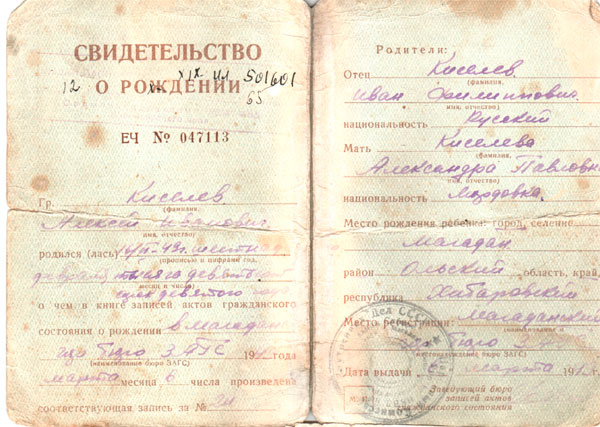 СВИДЕТЕЛЬСТВО
О РОЖДЕНИИ
12 XIX ИЛ 501601
65
ЕЧ № 047113
Гр. Киселев
(фамилия,
Алексей Иванович
имя, отчество)
родился (лась)
(прописью и цифрами год,
февраля тысяча девятьсот
месяц и число)
девятого
о чем в книге записей актов гражданского
состояния о рождении в Магадан
бюро ЗАГС 19 года
(наименование бюро ЗАГС)
марта месяца 6 числа произведена
соответствующая запись за №
Родители:
Отец Киселев
(фамилия,
Иван Филиппович
имя, отчество)
национальность Русский
Мать Киселева
(фамилия,
Александра Павловна
имя, отчество)
национальность Мордовка
Место рождения ребенка: город, селение
Магадан
район Ольский область, край,
республика Хабаровский
Место регистрации: Магаданский
бюро ЗАГС
(местонахождение и
наименование бюро ЗАГС)
Дата выдачи 6 марта 19 г.
Заведующий бюро
записей актов
гражданского состояния